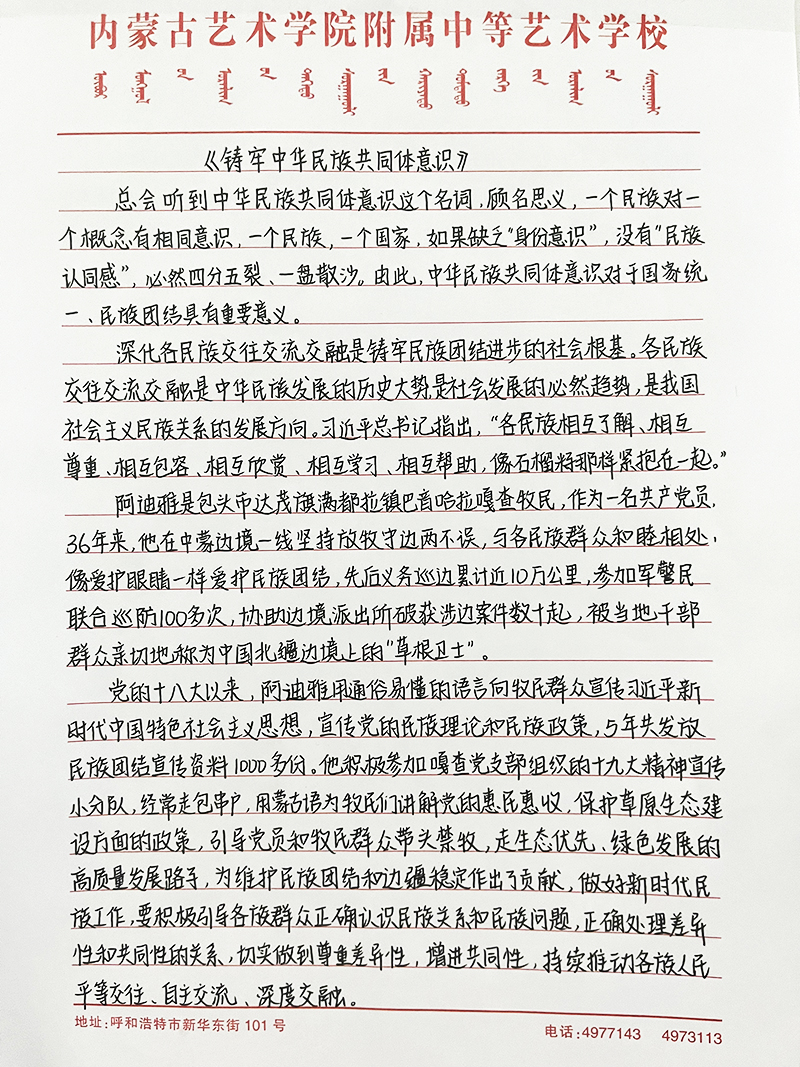 内蒙古艺术学院附属中等艺术学校
《铸牢中华民族共同体意识》
总会听到中华民族共同体意识这个名词，顾名思义，一个民族对一
个概念有相同意识，一个民族，一个国家，如果缺乏“身份意识”，没有“民族
认同感”，必然四分五裂、一盘散沙。由此，中华民族共同体意识对于国家统
一、民族团结具有重要意义。
深化各民族交往交流交融是铸牢民族团结进步的社会根基。各民族
交往交流交融是中华民族发展的历史大势是社会发展的必然趋势，是我国
社会主义民族关系的发展方向。习近平总书记指出，“各民族相互了解、相互
尊重、相互包容、相互欣赏、相互学习、相互帮助，像石榴籽那样紧抱在一起。”
阿迪雅是包头市达茂旗满都拉镇巴音哈拉嘎查牧民，作为一名共产党员，
36年来，他在中蒙边境一线坚持放牧守边两不误，与各民族群众和睦相处；
像爱护眼睛一样爱护民族团结，先后义务巡边累计近10万公里，参加军警民
联合巡防100多次，协助边境派出所破获涉边案件数十起，被当地干部
群众亲切地称为中国北疆边境上的“草根卫士”。
党的十八大以来，阿迪雅用通俗易懂的语言向牧民群众宣传习近平新
时代中国特色社会主义思想，宣传党的民族理论和民族政策，5年共发放
民族团结宣传资料1000多份。他积极参加嘎查党支部组织的十九大精神宣传
小分队，经常走包串户，用蒙古语为牧民们讲解党的惠民惠牧，保护草原生态建
设方面的政策，引导党员和牧民群众带头禁牧，走生态优先、绿色发展的
高质量发展路子，为维护民族团结和边疆稳定作出了贡献，做好新时代民
族工作，要积极引导各族群众正确认识民族关系和民族问题，正确处理差异
性和共同性的关系，切实做到尊重差异性，增进共同性，持续推动各族人民
平等交往、自主交流、深度交融。
地址：呼和浩特市新华东街101号 电话：4977143 4973113